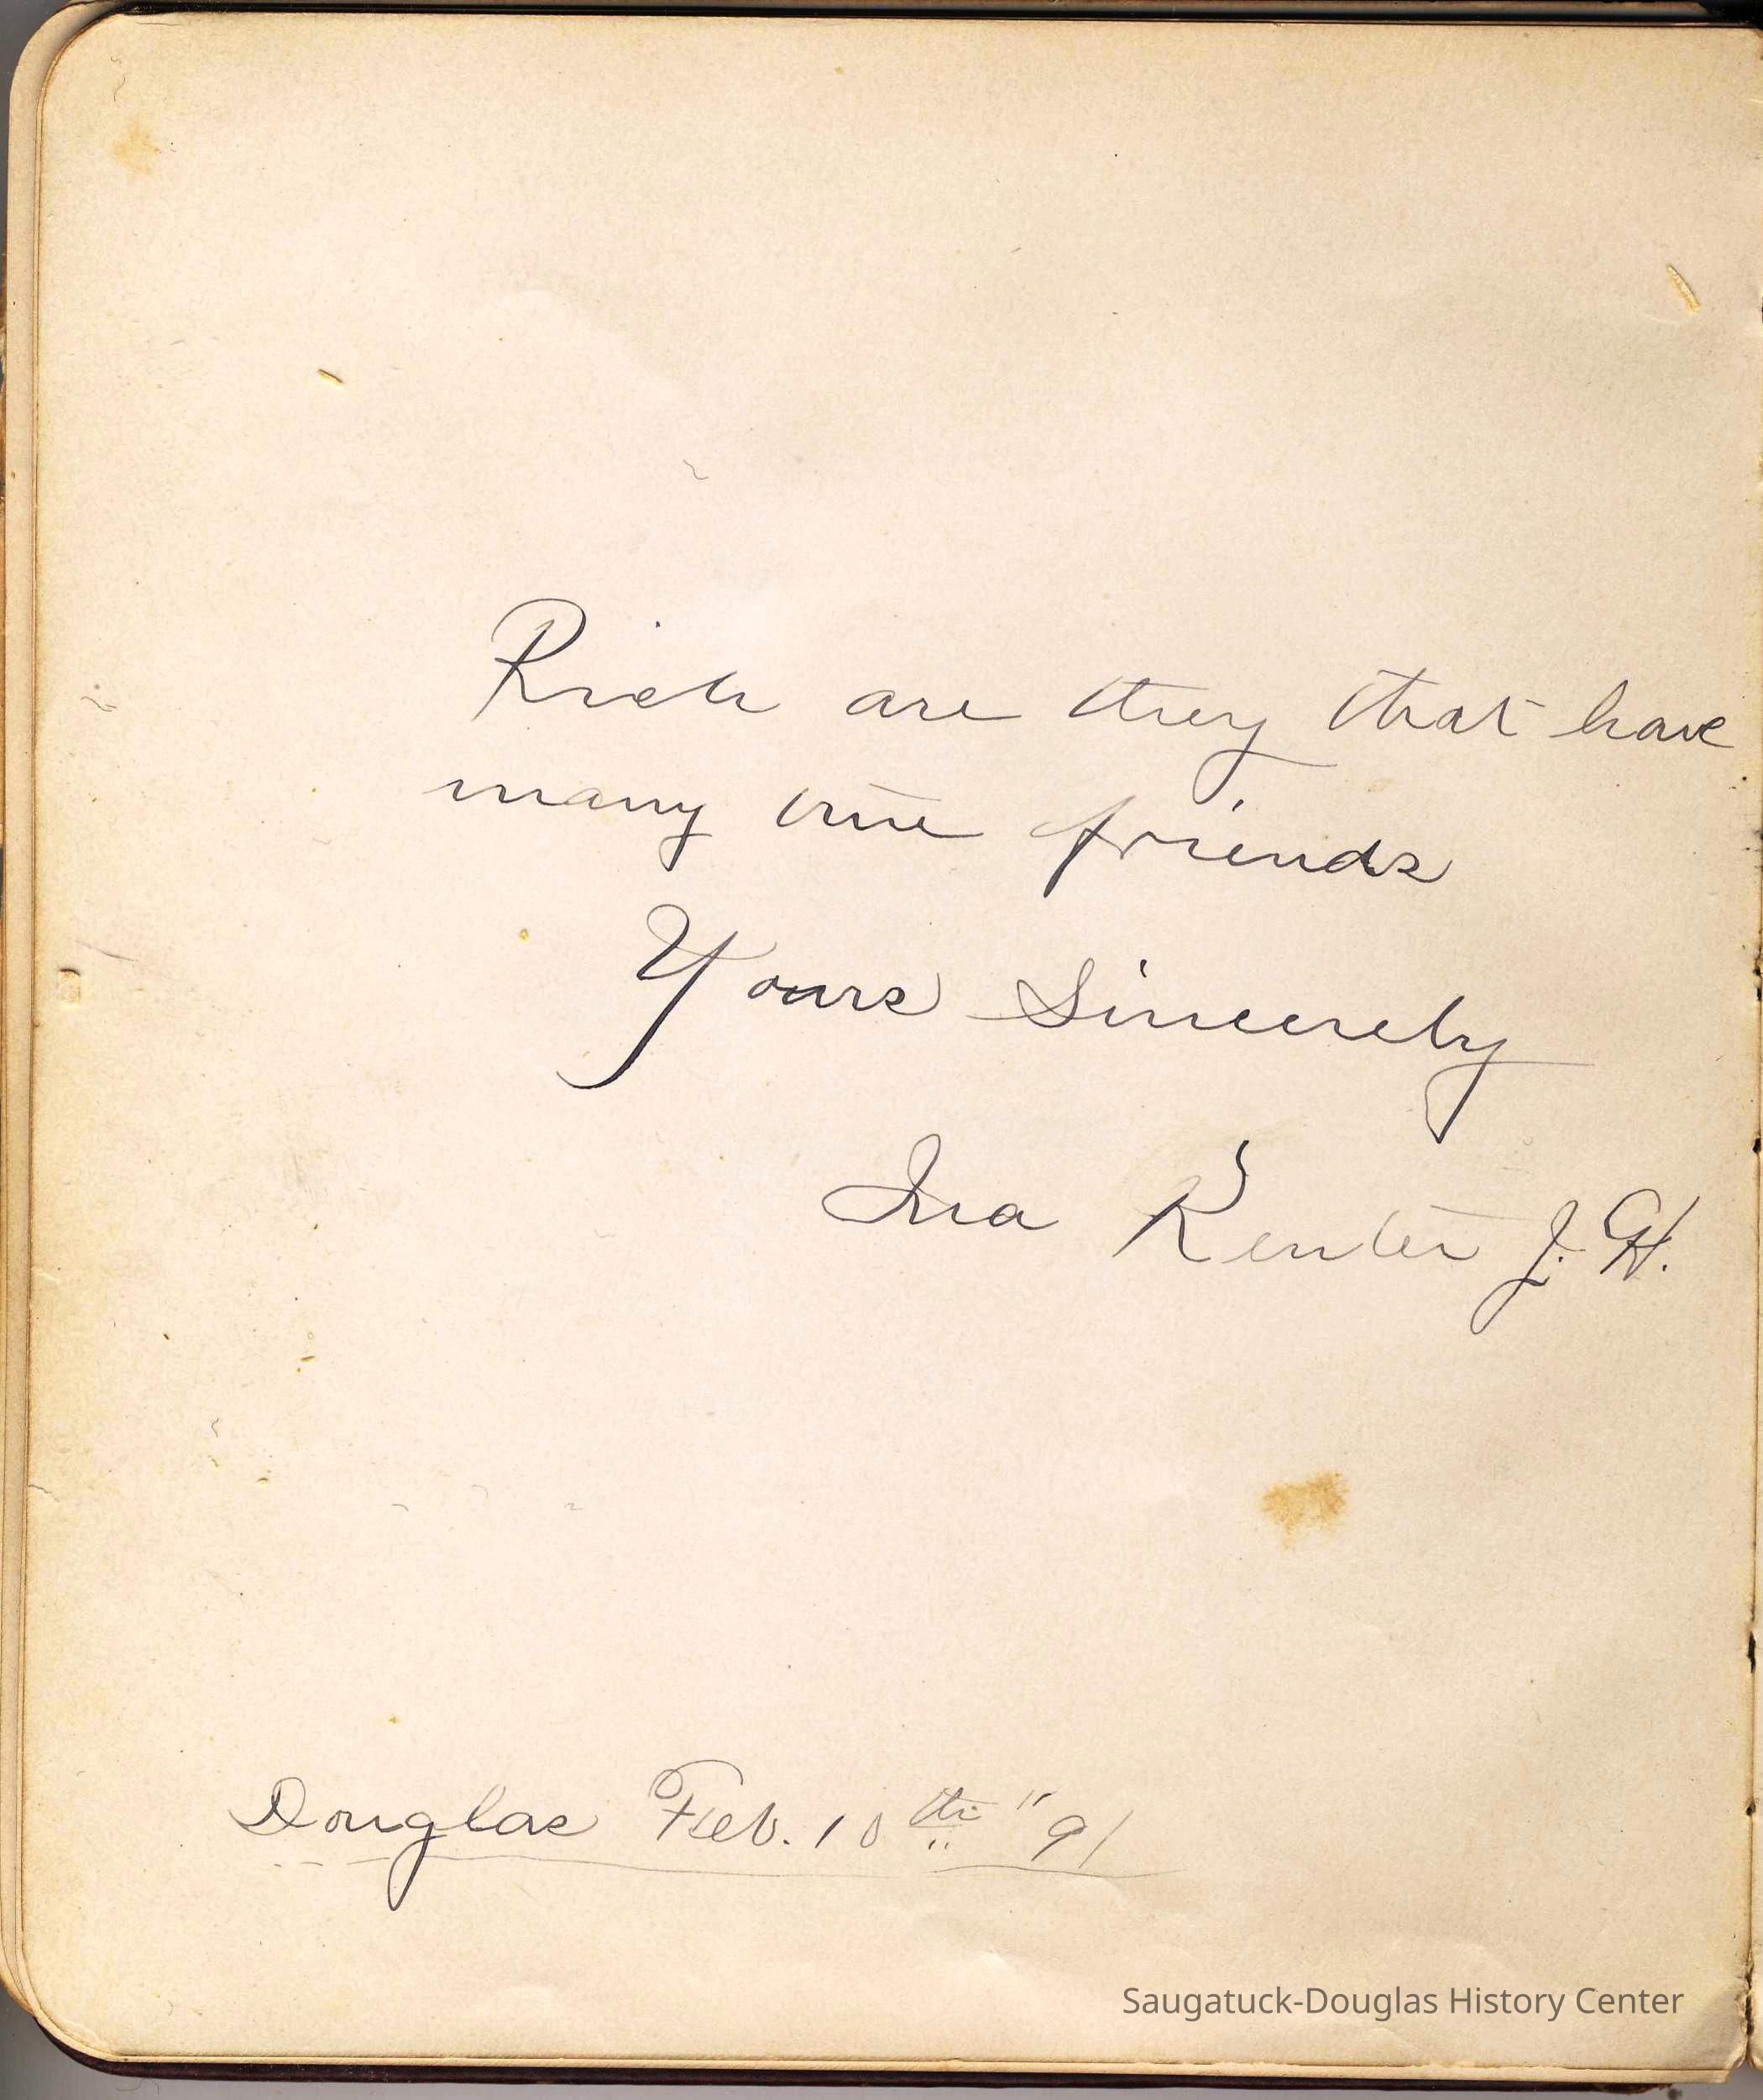 Rich are they that have
many true friends
Yours Sincerely
Ira J. H.
Douglas Feb. 10th "91
Saugatuck-Douglas History Center